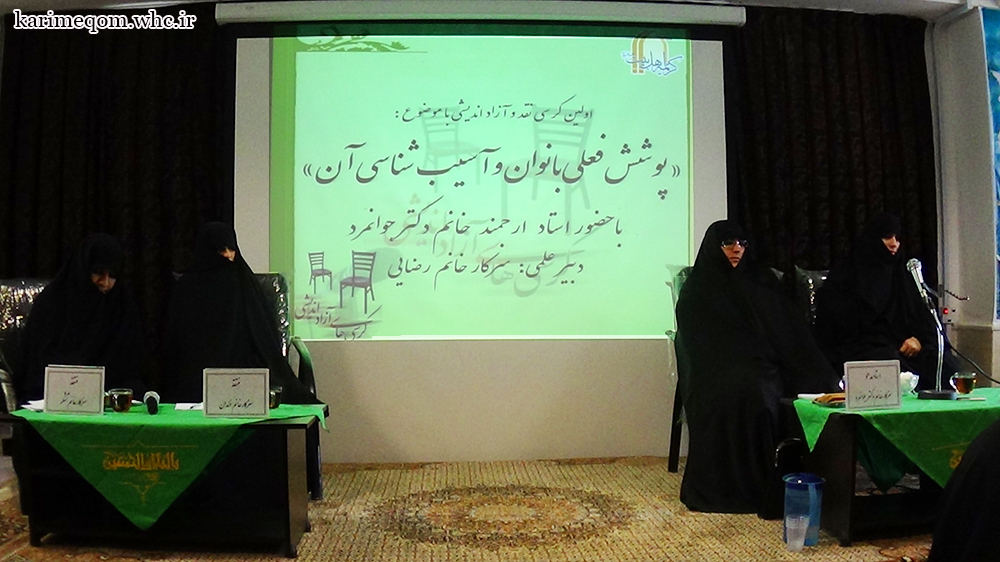 karimeqom.whc.ir
اولین کرسی نقد و آزاد اندیشی با موضوع :
«پوشش فعلی بانوان و آسیب شناسی آن»
با حضور استاد ارجمند خانم دکتر جوانمرد
دبیر علمی: سرکار خانم رضایی
کرسی های آزاد اندیشی
منتقد
منتقد
سرکار خانم دکتر جوانمرد